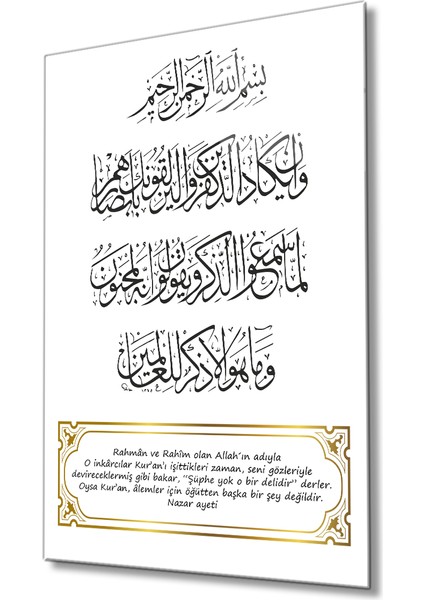 بسم الله الرحمن الرحيم
وان يكاد الذين كفروا ليزلقونك بابصارهم
لما سمعوا الذكر ويقولون انه لمجنون
وما هو الا ذكر للعالمين
Rahmân ve Rahîm olan Allah´ın adıyla
O inkârcılar Kur'an'ı işittikleri zaman, seni gözleriyle
devireceklermiş gibi bakar, "Şüphe yok o bir delidir" derler.
Oysa Kur'an, âlemler için öğütten başka bir şey değildir.
Nazar ayeti